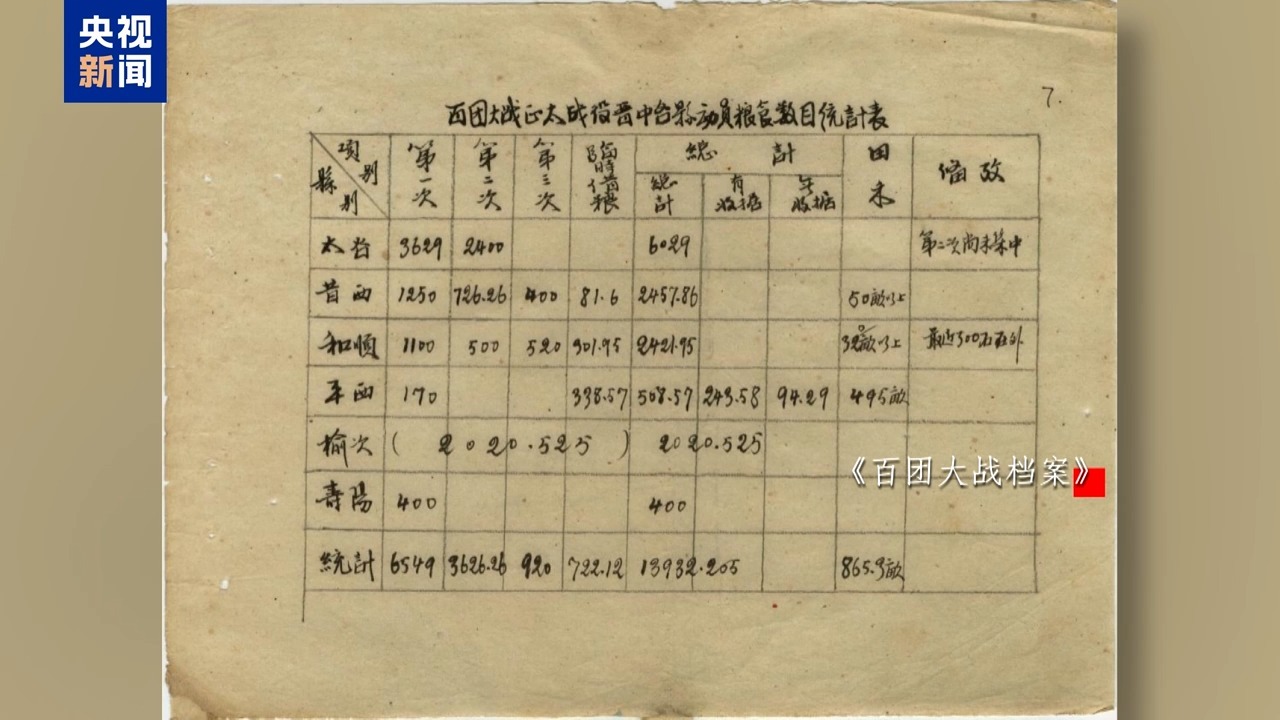 央视
新闻
7.
百团大战正太战役晋中各县动員粮食数目统計表
項别 縣别 第一次 第二次 第三次 臨時借粮 總計 總計 有收据 无收据 田禾 俻攷
太谷 3629 2400 6029 第二次尚未集中
昔西 1250 726.26 400 81.6 2457.86 50畝以上
和順 1100 500 520 301.95 2421.95 320畝以上 最近300石在外
平西 170 338.57 508.57 243.58 94.29 495畝
榆次 ( 2020.525 ) 2020.525
壽陽 400 400
統計 6549 3626.26 920 722.12 13932.205 865.3畝
《百团大战档案》